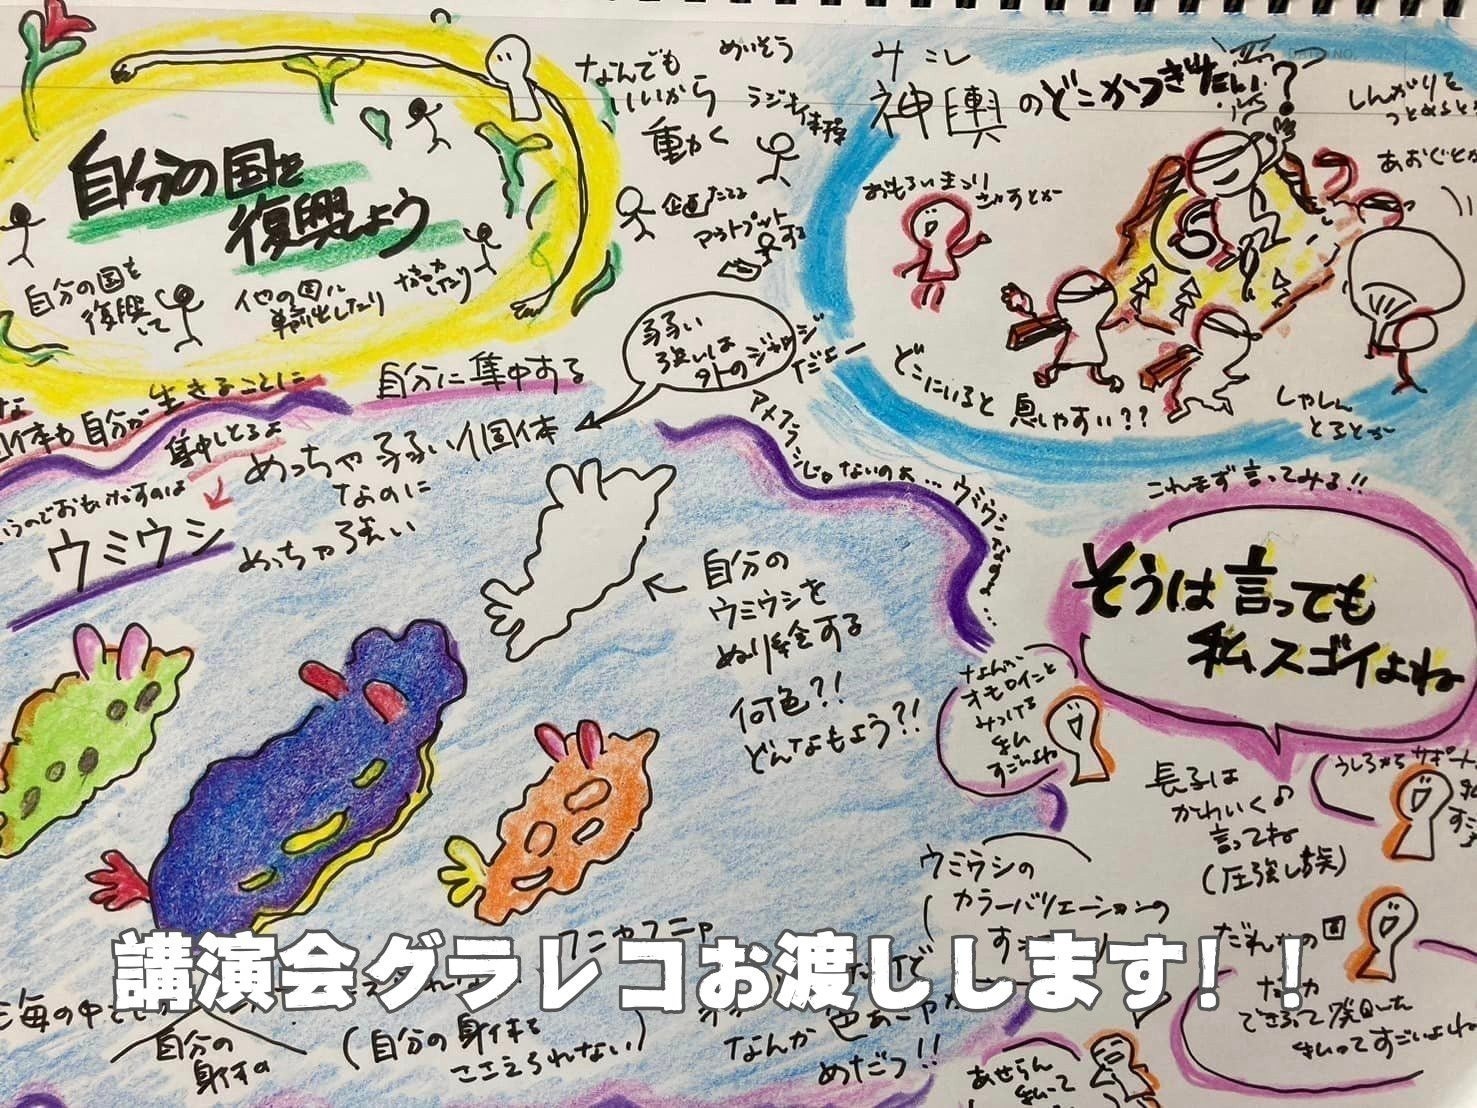 自分の国を
復興しよう
自分の国を
復興して
他の国に
輸出したり
なんでも
いいから
動かく
めいそう
ラジオ体操
企画たてる
アウトプット
する
ミコシ
神輿のどこかつぎたい?
しんがりで
つとめるとか
あおぐとか
おもろいまつり
さがすとか
どこにいると 息しやすい??
しゃしん
とるとか
弱い
強いは
外のジャッジ
だよー
自分に集中する
自分が生きることに
集中してるよ
めっちゃ弱い個体
なのに
めっちゃ強い
ウミウシ
アメフラシじゃないのぉ…ウミウシなのよ…
自分の
ウミウシを
ぬり絵する
何色?!
どんなもよう?!
これまず言ってみる!!
そうは言っても
私スゴイよね
なんか
オモロイこと
みつけてる
私
すごいよね
長子は
かわいく♪
言ってね
(圧強し族)
うしろからサポート
ウミウシの
カラーバリエーションの
だれかの国
なんか
できるって発見した
私ってすごいよね
フニャフニャ
講演会グラレコお渡しします!!
海の中
自分の
身体の
(自分の身体を
ささえられない)
なんか色あざやか
めだつ!!
あせらん
私って